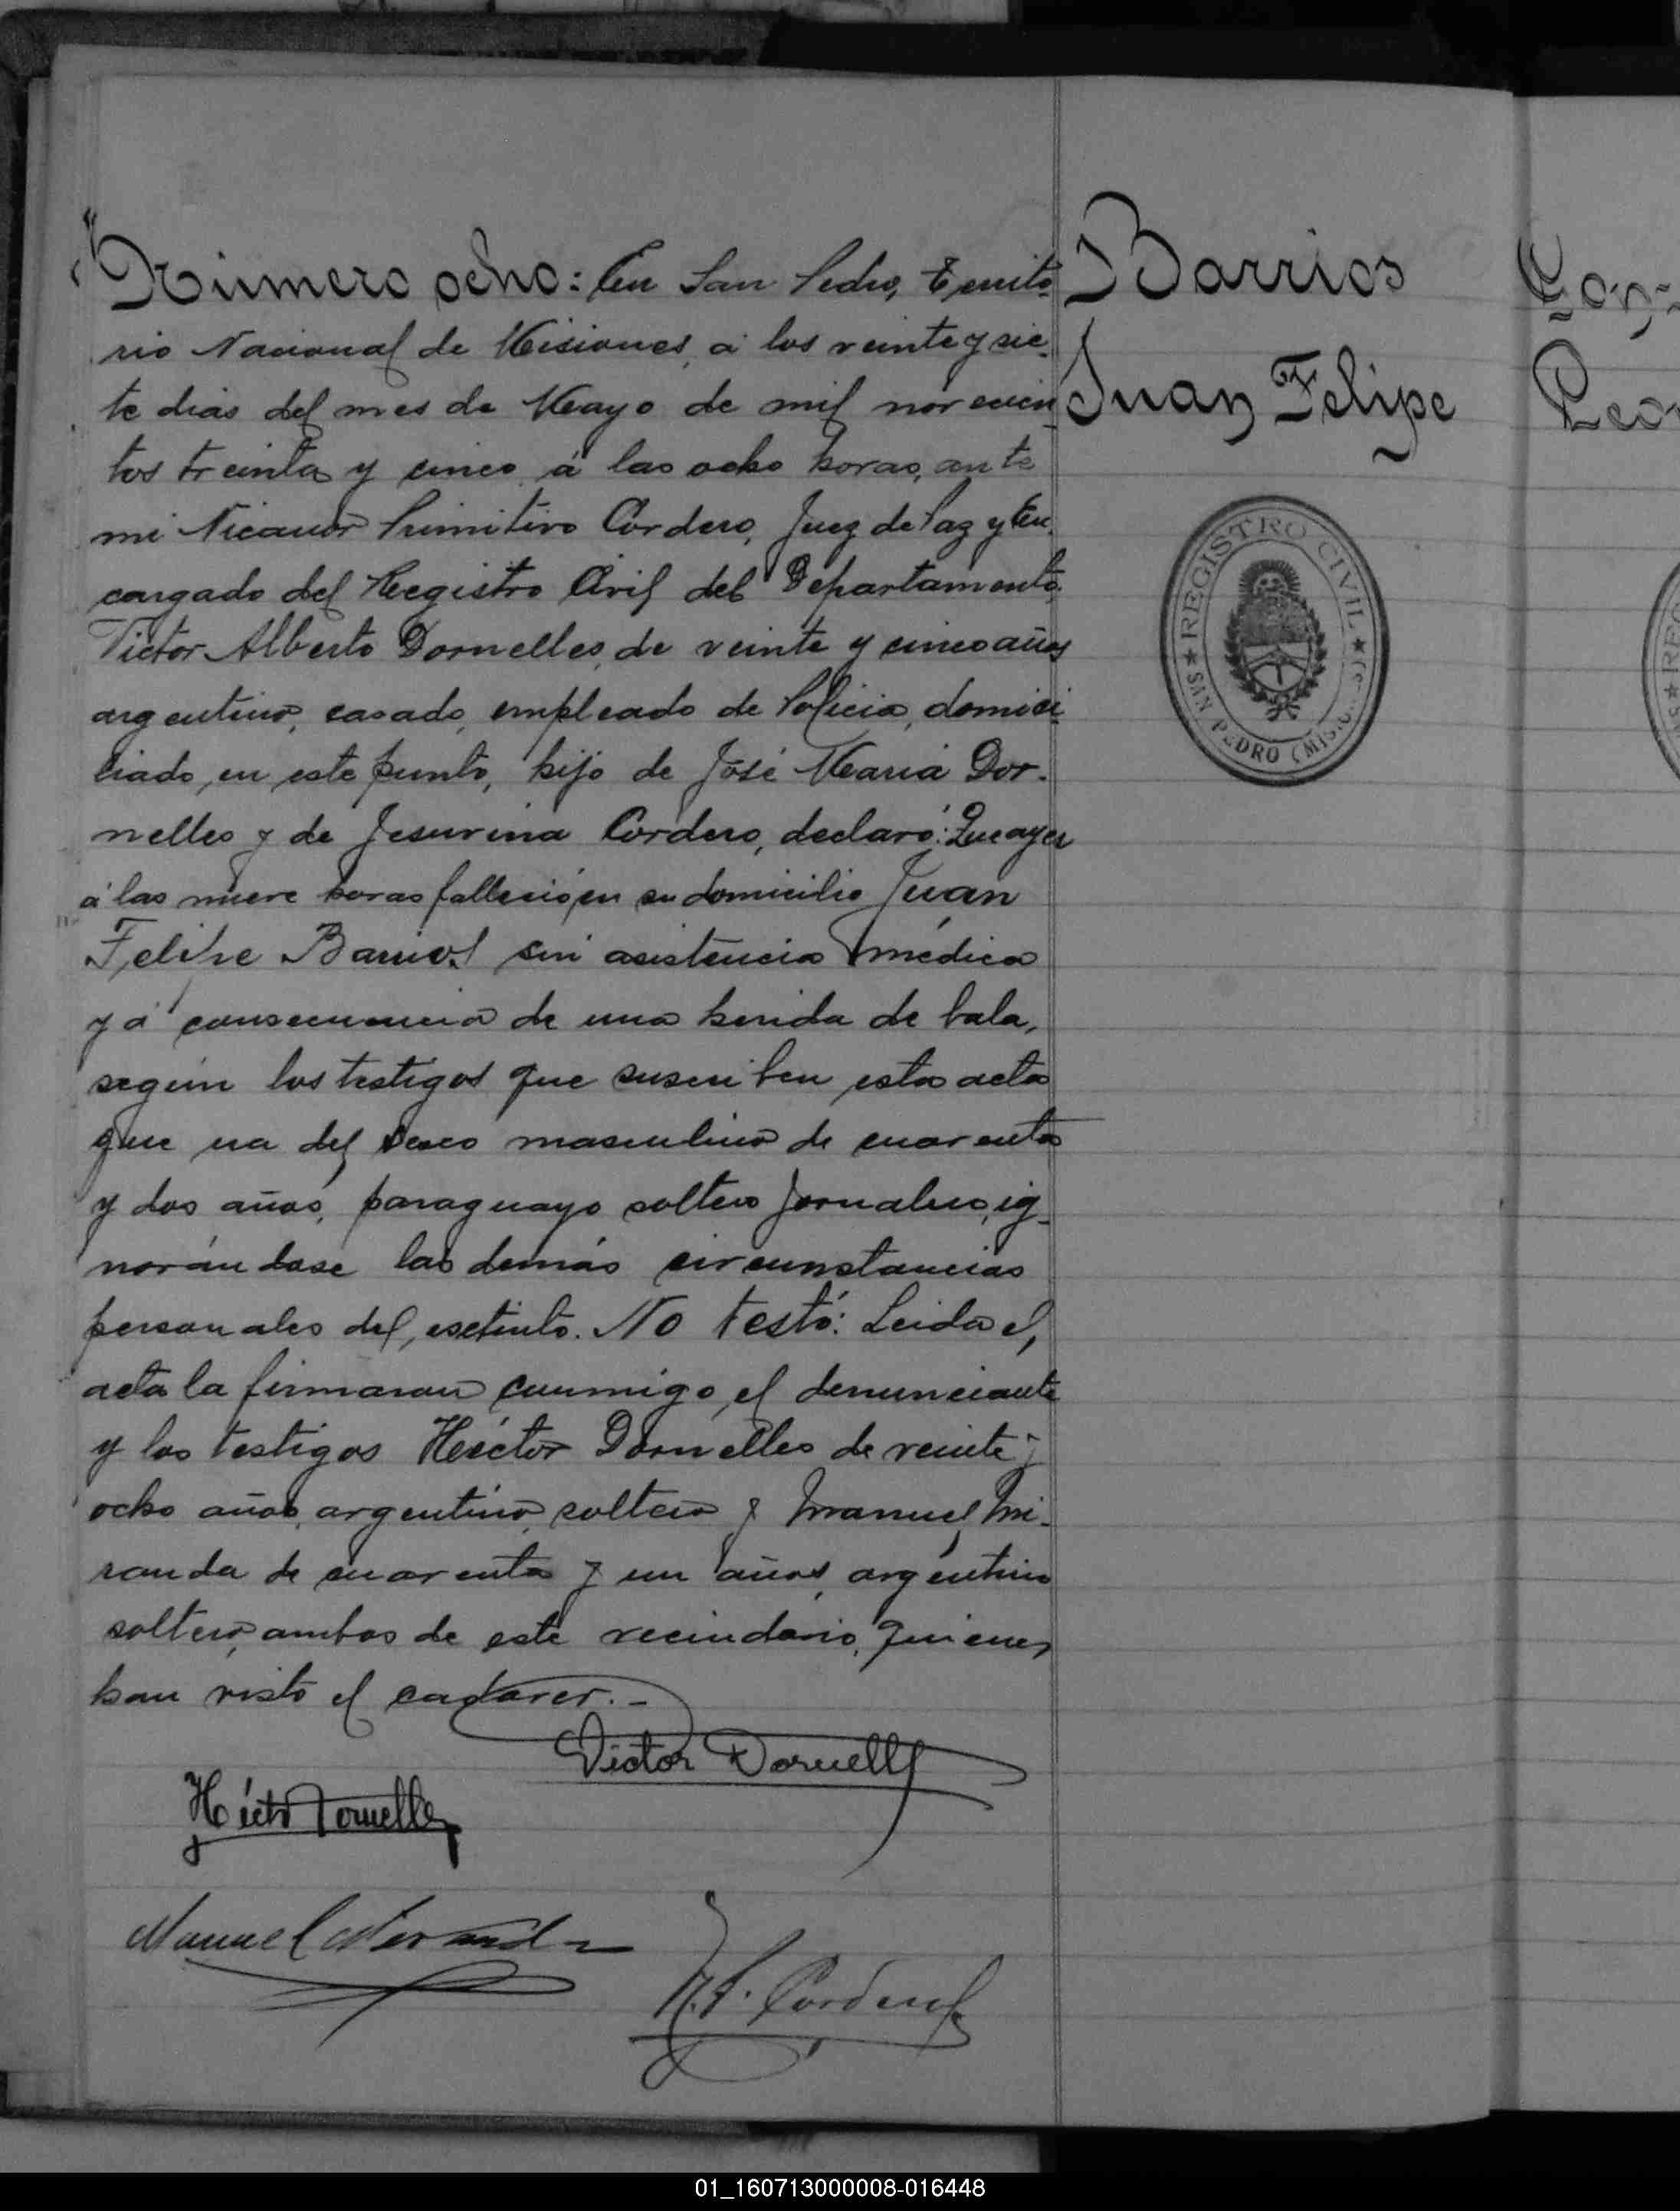 Número ocho: En San Pedro, Territo-
rio Nacional de Misiones, á los veinte y sie-
te dias del mes de Mayo de mil novecien-
tos treinta y cinco, á las ocho horas, ante
mi Nicanor Primitivo Cordero, Juez de Paz y En-
cargado del Registro Civil del Departamento,
Victor Alberto Dornelles, de veinte y cinco años
argentino, casado, empleado de Policia, domici-
liado, en este punto, hijo de José Maria Dor-
nelles y de Jesuvina Cordero, declaró: Que ayer
á las nueve horas falleció en su domicilio Juan
Felipe Barrios sin asistencia médica
y á consecuencia de una herida de bala,
según los testigos que suscriben esta acta
que era del sexo masculino de cuarenta
y dos años, paraguayo soltero Jornalero, ig-
norándose las demás circunstancias
personales del, extinto. No testó: Leida el,
acta la firmaron conmigo, el denunciante
y los testigos Héctor Dornelles de veinte y
ocho años, argentino, soltero y Manuel Mi-
randa de cuarenta y un años, argentino
soltero, ambos de este vecindario, quienes
han visto el cadaver.-
Victor Dornelles
Héctor Dornelles
Manuel Miranda
N.P. Cordero
Barrios
Juan Felipe
★ REGISTRO CIVIL ★
SAN PEDRO (MIS
Gon-
Leo
01_160713000008-016448